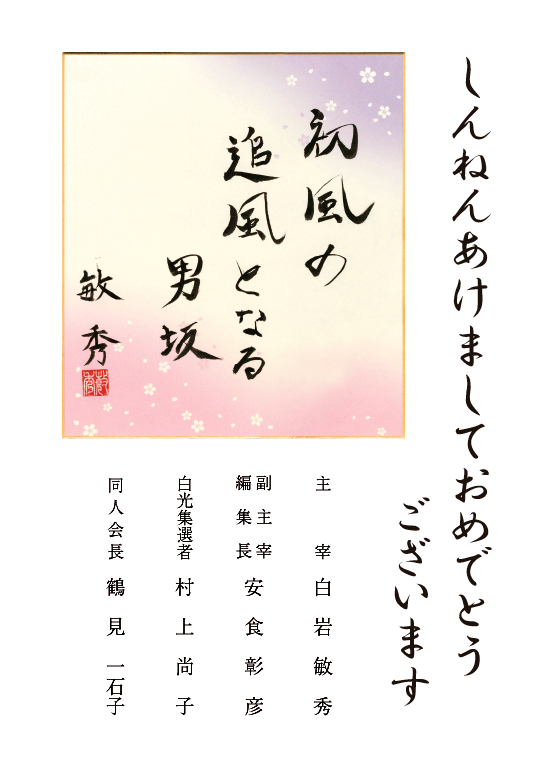 しんねんあけましておめでとう
ございます
初風の
追風となる
男坂
敏秀
主宰 白岩敏秀
副主宰
編集長 安食彰彦
白光集選者 村上尚子
同人会長 鶴見一石子